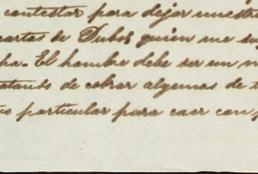 contestar para dejar nuestro
cartas de Dubos quien me su
ha. El hombre debe ser un m
atando de cobrar algomas de t
particular para caer con